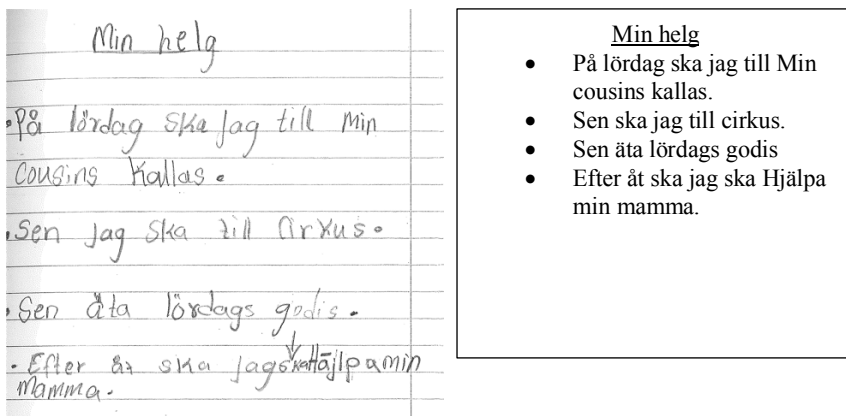 Min helg
• På lördag ska jag till Min
Cousins kallas.
• Sen jag ska till Cirkus.
• Sen äta lördags godis.
• Efter åt ska jag ska Häjlpa min
Mamma.
Min helg
• På lördag ska jag till Min
cousins kallas.
• Sen ska jag till cirkus.
• Sen äta lördags godis
• Efter åt ska jag ska Hjälpa
min mamma.